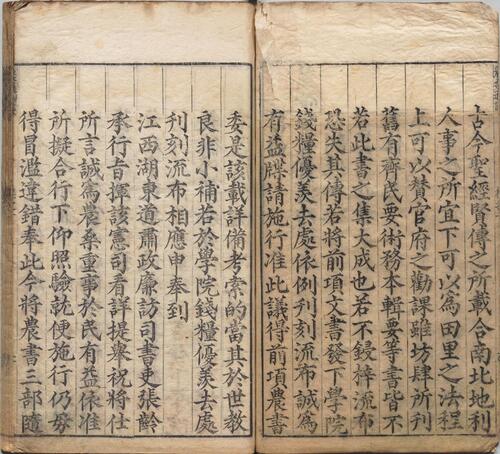 古今聖經賢傳之所載合南北地利
人事之所宜下可以為田里之法程
上可以贊官府之勸課雖坊肆所刊
舊有齊民要術務本輯要等書皆不
若此書之集大成也若不鋟梓流布
恐失其傳若將前項文書發下學院
錢糧優羨去處依例刋刻流布誠為
有益牒請施行准此議得前項農書
委是該載詳備考索的當其於世教
良非小補若於學院錢糧優羨去處
刋刻流布相應申奉到
江西湖東道肅政廉訪司書吏張齡
承行旨揮該憲司看詳提舉祝將仕
所言誠為農桑重事於民有益依准
所擬合行下仰照驗就便施行仍毋
得冒濫違錯奉此今將農書三部隨